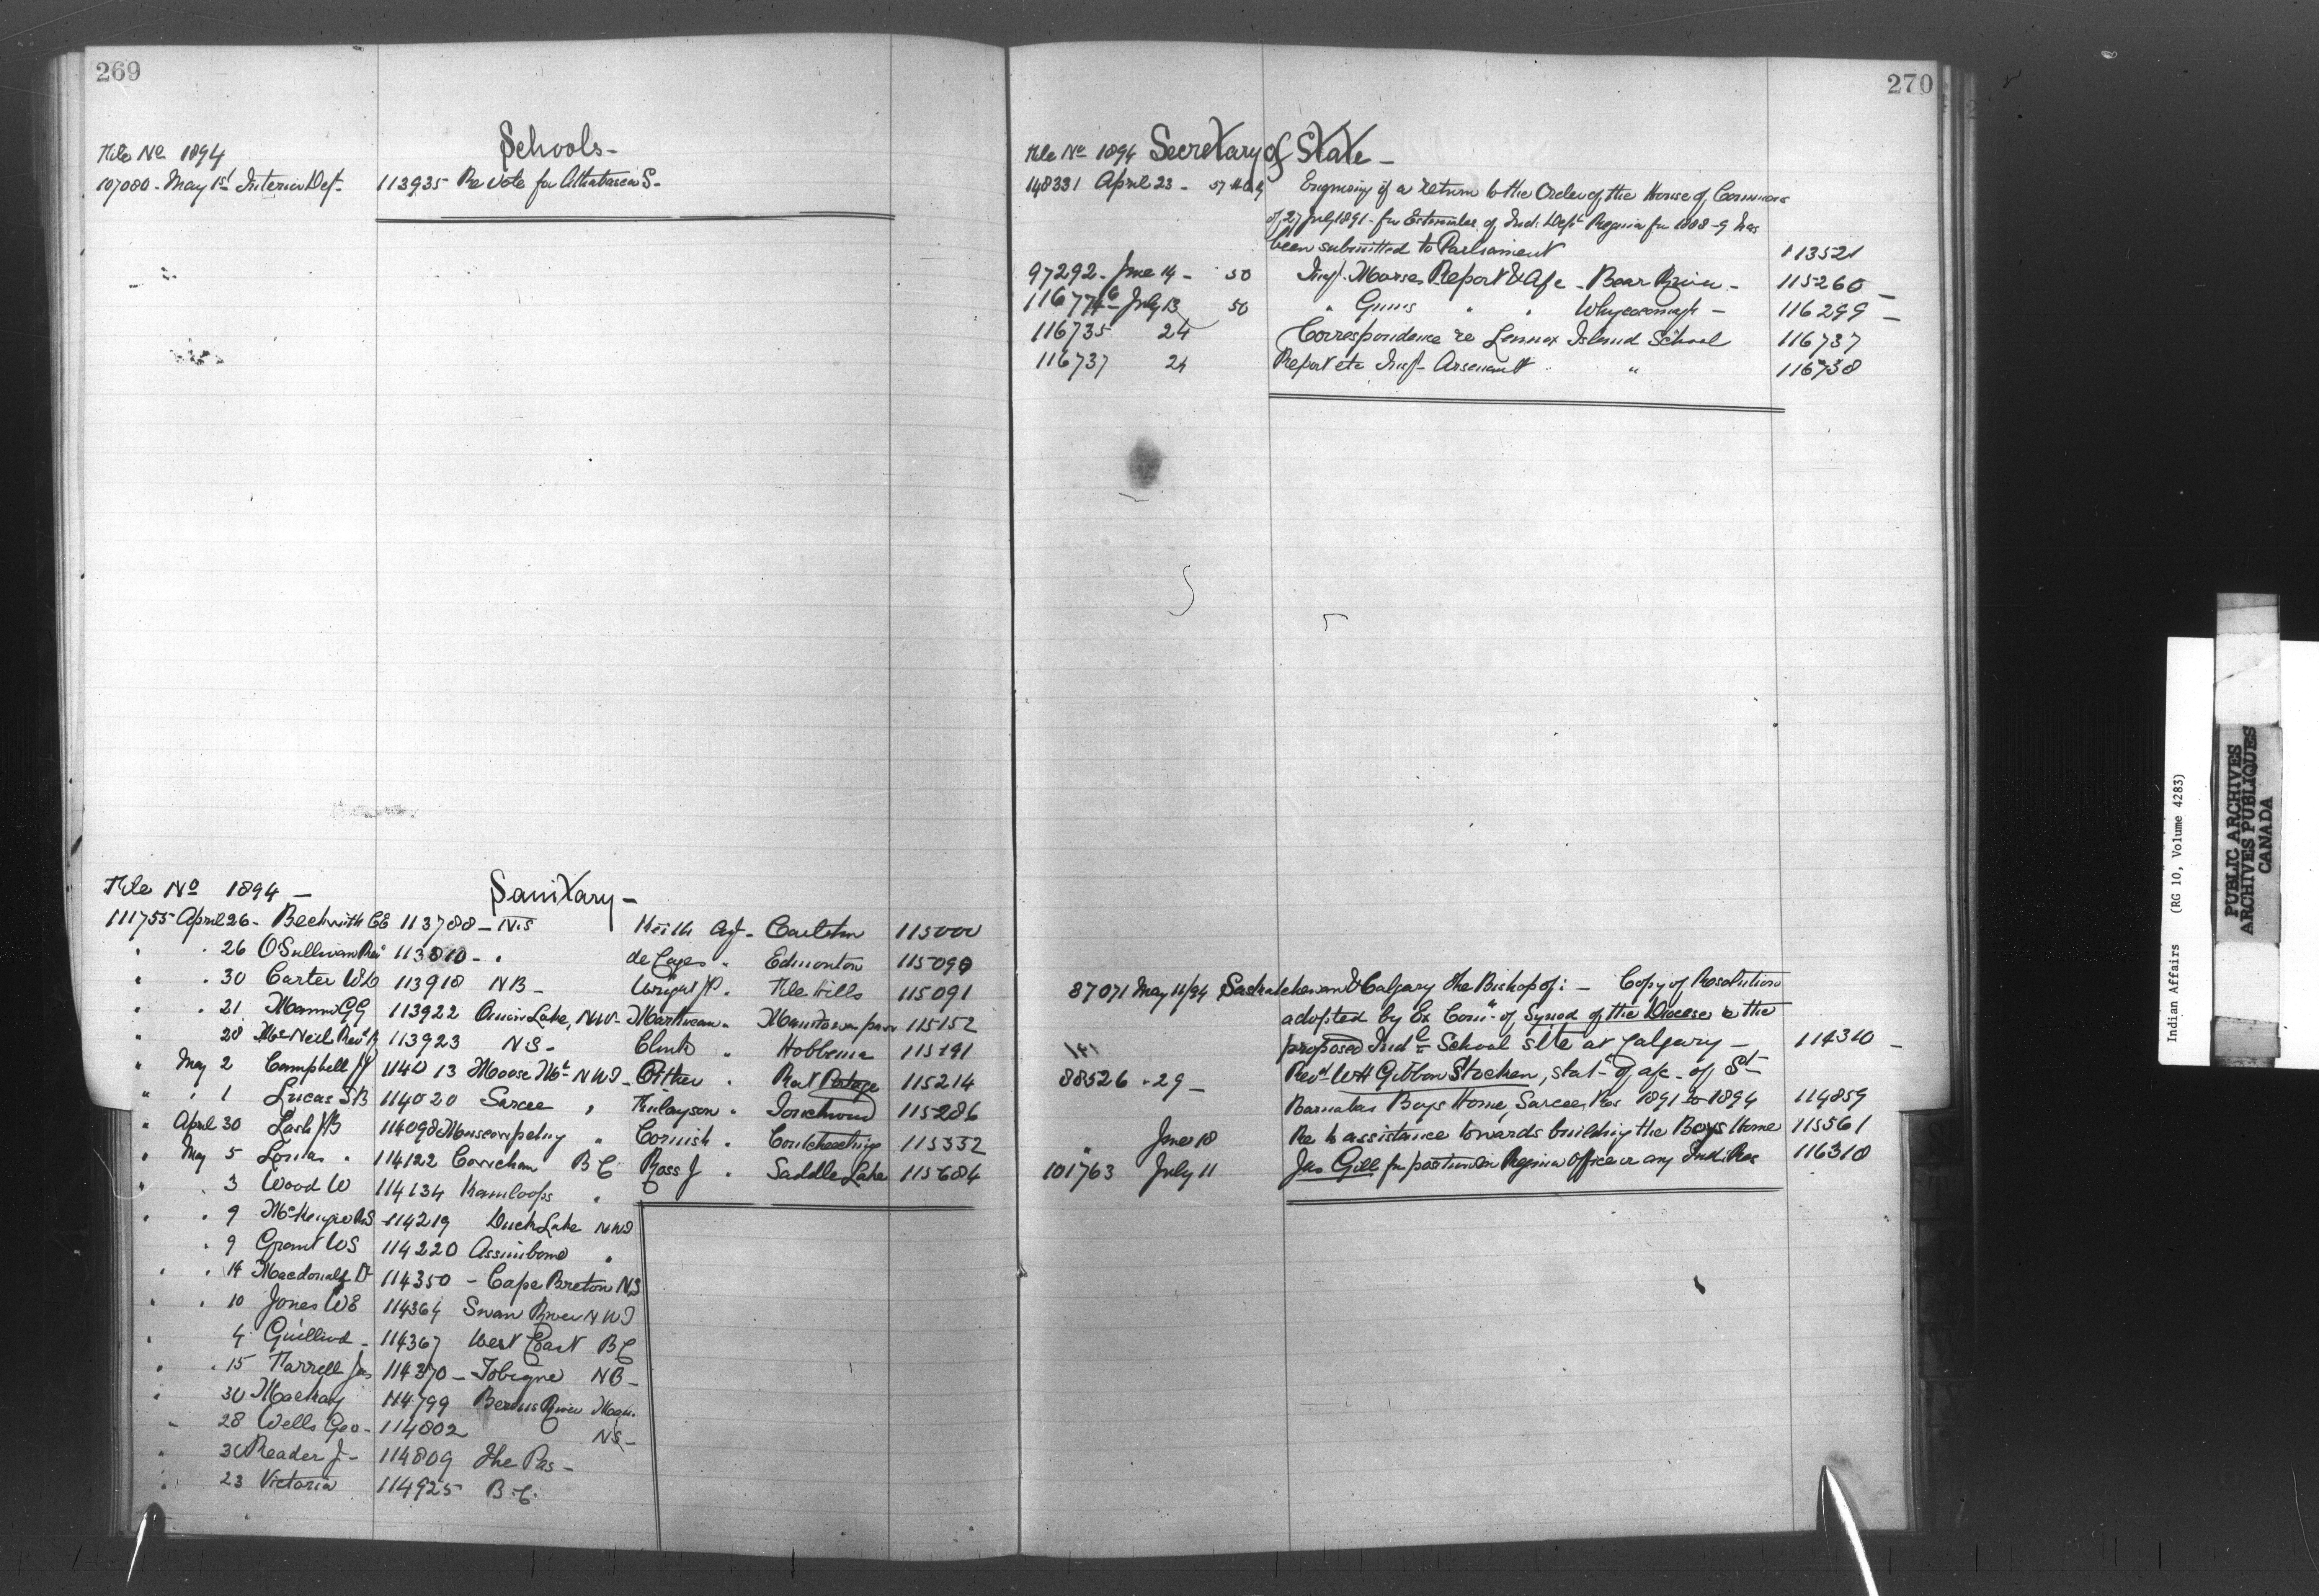 269
Schools -
File No 1894
107080 - May 1st Interior Dept - 113935 Re Vote for Athabasca S -
File No 1894 -
Sanitary -
111755 April 26 - Beckwith CE 113788 - N.S
" . 26 O'Sullivan Rev 113810 - "
" . 30 Carter W D 113918 NB -
" . 21 Mann GG 113922 Onion Lake, NW -
" 28 McNeil Revd 113923 NS -
" May 2 Campbell JJ 114013 Moose Mt NWT
" . 1 Lucas SB 114020 Sarcee "
" April 30 Lash JB 114098 Muscowpetung "
" May 5 Lomas " 114122 Cowichan BC
" . 3 Wood W 114134 Kamloops "
" . 9 McKenzie RS 114219 Duck Lake NWT
. 9 Grant WS 114220 Assiniboine "
" . 14 Macdonald Dr 114350 - Cape Breton NS
" . 10 Jones WE 114364 Swan River NWT
" 4 Guillod - 114367 West Coast BC
" . 15 Farrell Jas 114370 - Tobique NB -
" 30 Mackay 114799 Berens River Man.
" 28 Wells Geo - 114802 NS -
" 30 Reader J - 114809 The Pas -
" 23 Victoria 114925 B.C.
Keith Agt - Carlton 115000
de Cazes " Edmonton 115090
Wright JP " File Hills 115091
Martineau " Manitowapaw 115152
Clink " Hobbema 115191
Pither " Rat Portage 115214
Finlayson " Touchwood 115286
Cornish " Coutcheeching 115332
Ross J " Saddle Lake 115684
270
File No 1894 Secretary of State -
148331 April 23 - Engrossing of a return to the Order of the House of Commons
of 27 July 1891 - for Estimates of Ind. Dept Regina for 1888-9 has
been submitted to Parliament 113521
97292 - June 14 - 50 Insp. Morse's Report & A/c - Bear River - 115260 -
July 13 50 " Gunn's " " Whycocomagh - 116299 -
116735 24 Correspondence re Lennox Island School 116737
116737 24 Report etc Insp - Arsenault " " 116738
87071 May 11/94 Saskatchewan & Calgary the Bishop of : - Copy of Resolution
adopted by Ex Com. of Synod of the Diocese re the
proposed Indl School site at Calgary - 114310 -
88526 " 29 - Revd WH Gibbon Stocken, stat. of a/c - of St
Barnabas Boys Home, Sarcee Res 1891 to 1894 114859
" June 18 Re to assistance towards building the Boys Home 115561
101763 July 11 Jas Gill for position in Regina Office or any Ind. Res 116318
Indian Affairs (RG 10, Volume 4283)
PUBLIC ARCHIVES
ARCHIVES PUBLIQUES
CANADA